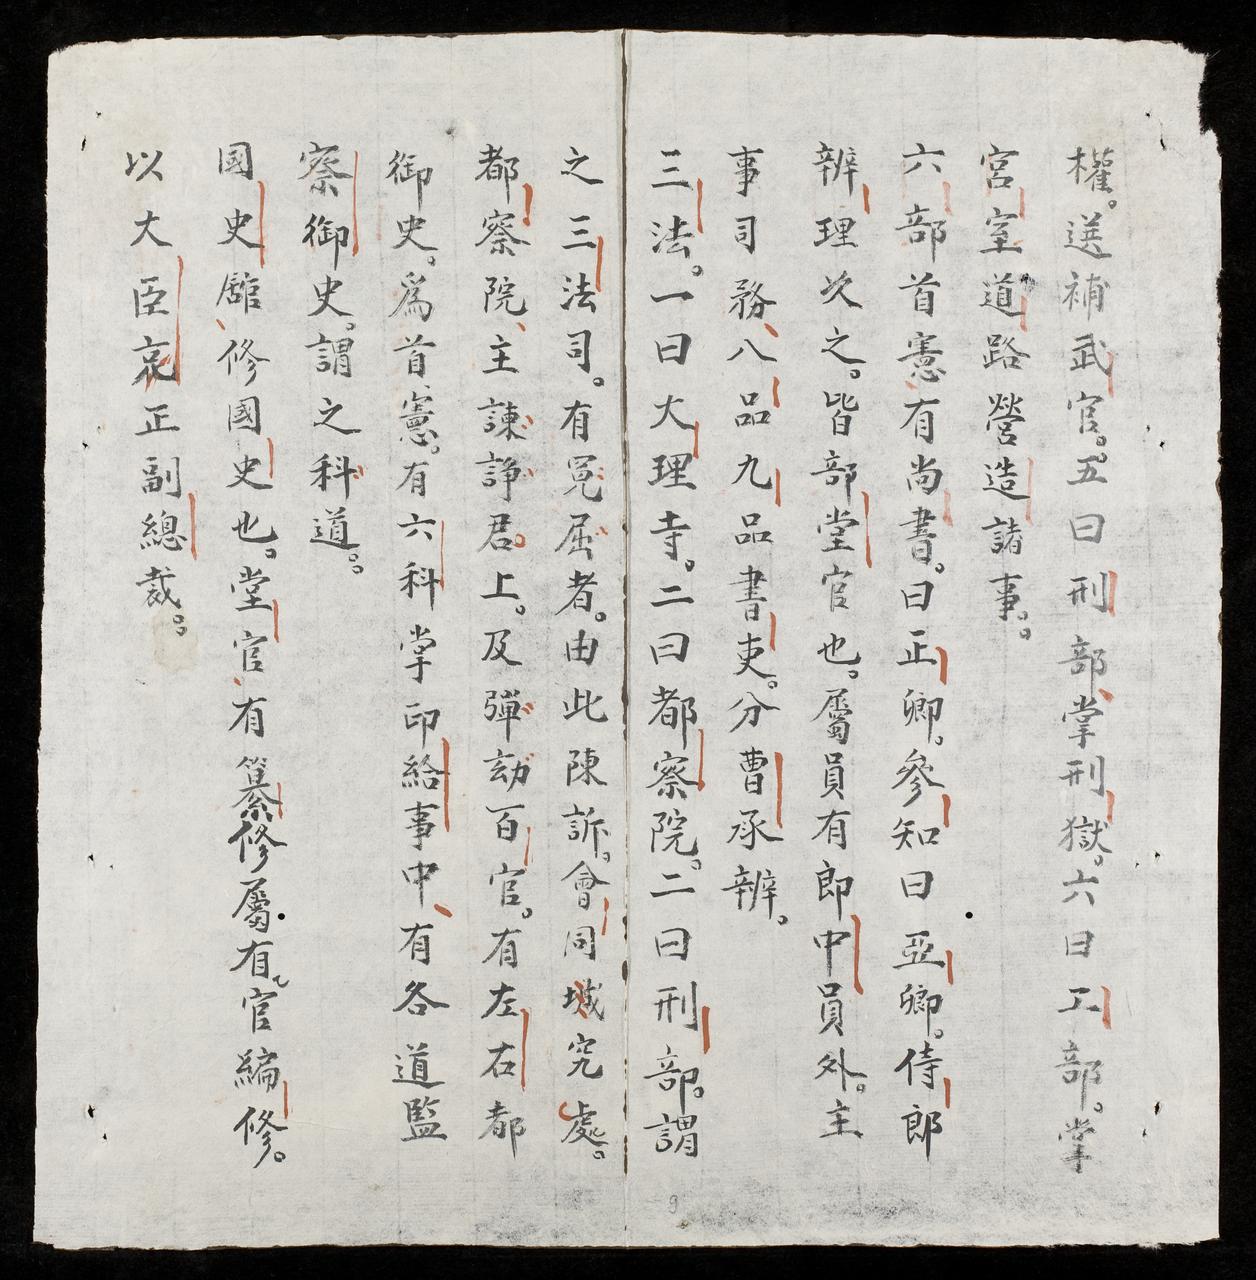 權。選補武官。五曰刑部、掌刑獄。六曰工部。掌
宮室道路營造諸事。
六部首憲有尚書。曰正卿。參知曰亞卿。侍郎
辨理次之。皆部堂官也。屬員有郎中員外。主
事司務、八品九品書吏。分曹承辨。
三法。一曰大理寺。二曰都察院。二曰刑部。謂
之三法司。有冤屈者。由此陳訴。會同城究處。
都察院、主諫諍君上。及彈劾百官。有左右都
御史。爲首憲。有六科掌印給事中、有各道監
察御史。謂之科道。
國史館、修國史也。堂官、有纂修屬有官編修。
以大臣充正副總裁。
9